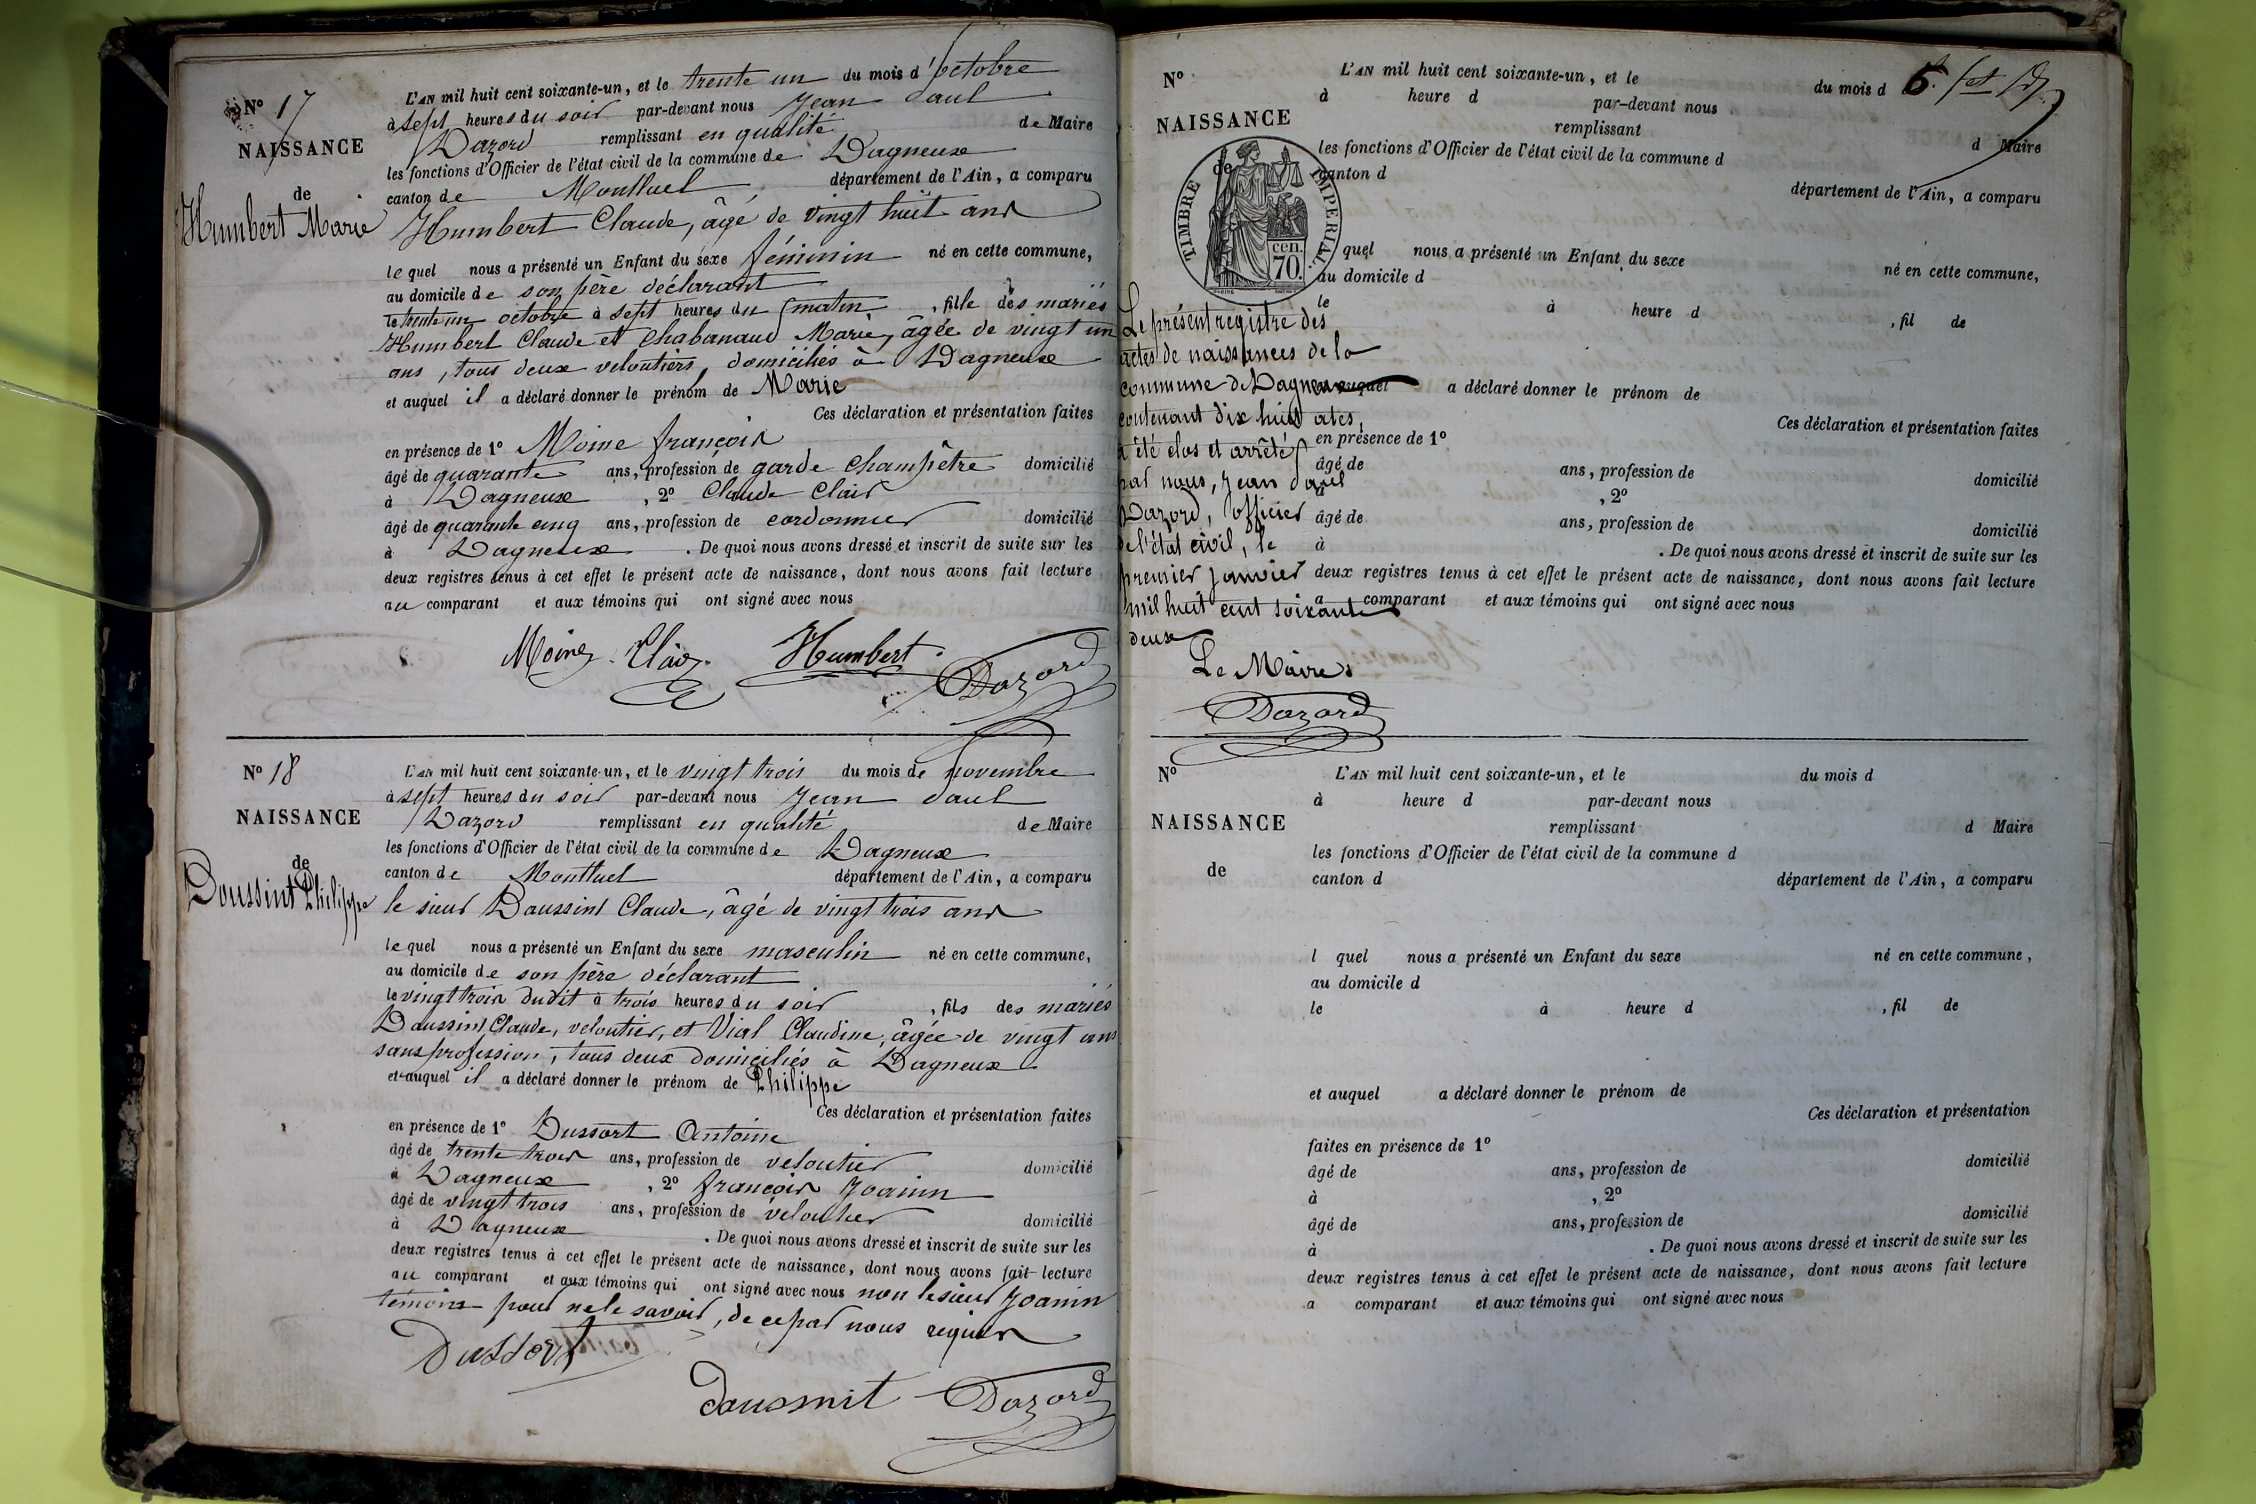 N° 17
NAISSANCE
de
Humbert Marie
L'AN mil huit cent soixante-un, et le trente un du mois d'octobre
à sept heures du soir par-devant nous Jean Paul
Dazord remplissant en qualité de Maire
les fonctions d'Officier de l'état civil de la commune de Dagneux
canton de Montluel département de l'Ain, a comparu
Humbert Claude, âgé de vingt huit ans
lequel nous a présenté un Enfant du sexe féminin né en cette commune,
au domicile de son père déclarant
le trente un octobre à sept heures du matin, fille des mariés
Humbert Claude et Chabanaud Marie, âgée de vingt un
ans, tous deux veloutiers, domiciliés à Dagneux
et auquel il a déclaré donner le prénom de Marie
Ces déclaration et présentation faites
en présence de 1° Moine françois
âgé de quarante ans, profession de garde champêtre domicilié
à Dagneux, 2° Claude Clair
âgé de quarante cinq ans, profession de cordonnier domicilié
à Dagneux. De quoi nous avons dressé et inscrit de suite sur les
deux registres tenus à cet effet le présent acte de naissance, dont nous avons fait lecture
au comparant et aux témoins qui ont signé avec nous
Moine Clair Humbert Dazord
N° 18
NAISSANCE
de
Doussint Philippe
L'AN mil huit cent soixante-un, et le vingt trois du mois de novembre
à sept heures du soir par-devant nous Jean Paul
Dazord remplissant en qualité de Maire
les fonctions d'Officier de l'état civil de la commune de Dagneux
canton de Montluel département de l'Ain, a comparu
le sieur Daussint Claude, âgé de vingt trois ans
lequel nous a présenté un Enfant du sexe masculin né en cette commune,
au domicile de son père déclarant
le vingt trois dudit à trois heures du soir, fils des mariés
Daussint Claude, veloutier, et Vial Claudine, âgée de vingt ans
sans profession, tous deux domiciliés à Dagneux
et auquel il a déclaré donner le prénom de Philippe
Ces déclaration et présentation faites
en présence de 1° Dussort Antoine
âgé de trente trois ans, profession de veloutier domicilié
à Dagneux, 2° françois Joanin
âgé de vingt trois ans, profession de veloutier domicilié
à Dagneux. De quoi nous avons dressé et inscrit de suite sur les
deux registres tenus à cet effet le présent acte de naissance, dont nous avons fait lecture
au comparant et aux témoins qui ont signé avec nous non le sieur Joanin
témoins pour ne le savoir, de ce par nous requis
Dussort
Dousmit Dazord
N°
NAISSANCE
de
TIMBRE IMPERIAL
cen.
70.
L'AN mil huit cent soixante-un, et le du mois d
à heure d par-devant nous
remplissant d Maire
les fonctions d'Officier de l'état civil de la commune d
canton d
département de l'Ain, a comparu
quel nous a présenté un Enfant du sexe né en cette commune,
au domicile d
le à heure d, fil de
auquel a déclaré donner le prénom de
Ces déclaration et présentation faites
en présence de 1°
âgé de ans, profession de domicilié
à, 2°
âgé de ans, profession de domicilié
à. De quoi nous avons dressé et inscrit de suite sur les
deux registres tenus à cet effet le présent acte de naissance, dont nous avons fait lecture
a comparant et aux témoins qui ont signé avec nous
Le présent registre des
actes de naissances de la
commune de Dagneux
contenant dix huit actes,
a été clos et arrêté
par nous, Jean Paul
Dazord, officier
de l'état civil, le
premier janvier
mil huit cent soixante
deux
Le Maire
Dazord
N°
NAISSANCE
de
L'AN mil huit cent soixante-un, et le du mois d
à heure d par-devant nous
remplissant d Maire
les fonctions d'Officier de l'état civil de la commune d
canton d département de l'Ain, a comparu
l quel nous a présenté un Enfant du sexe né en cette commune,
au domicile d
le à heure d, fil de
et auquel a déclaré donner le prénom de
Ces déclaration et présentation
faites en présence de 1°
âgé de ans, profession de domicilié
à, 2°
âgé de ans, profession de domicilié
à. De quoi nous avons dressé et inscrit de suite sur les
deux registres tenus à cet effet le présent acte de naissance, dont nous avons fait lecture
a comparant et aux témoins qui ont signé avec nous